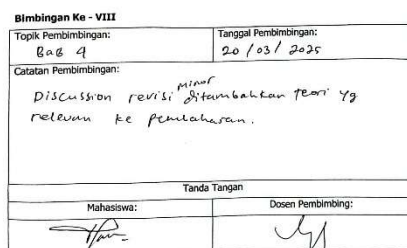 Bimbingan Ke - VIII
Topik Pembimbingan:
Bab 4
Tanggal Pembimbingan:
20 / 03 / 2025
Catatan Pembimbingan:
minor
Discussion revisi ditambahkan teori yg
relevan ke pembahasan.
Tanda Tangan
Mahasiswa:
Dosen Pembimbing: